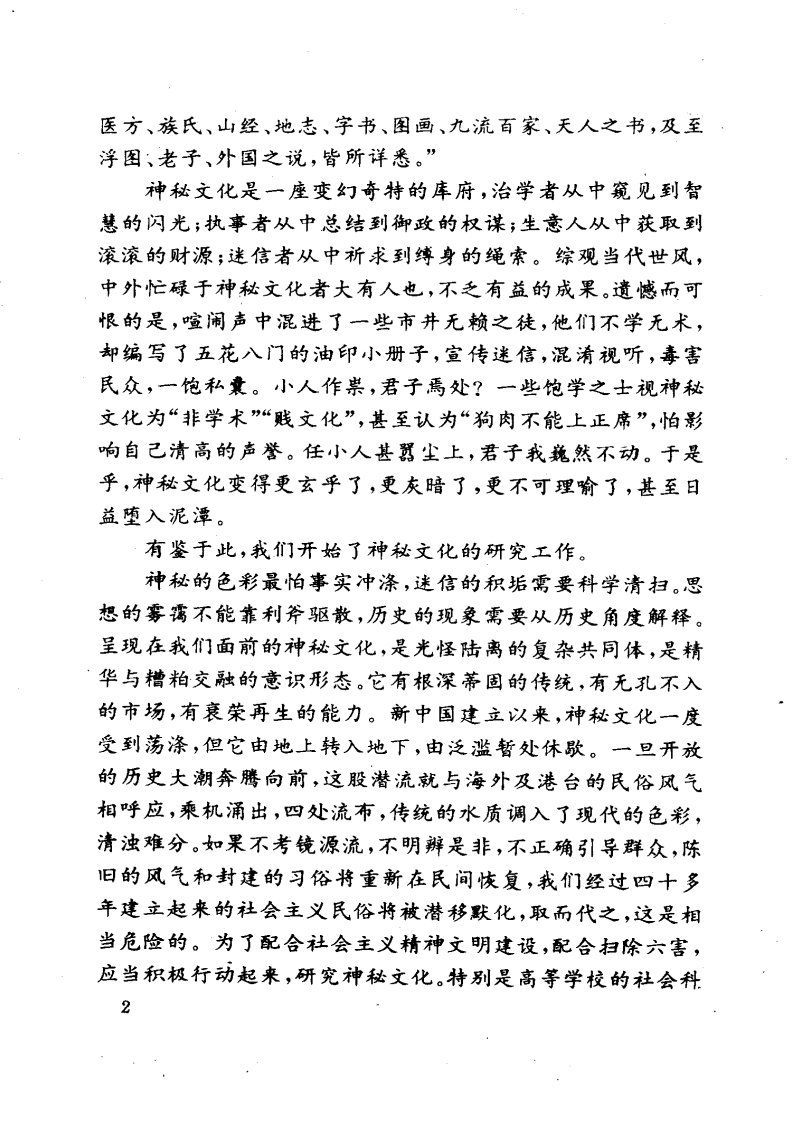 医方、族氏、山经、地志、字书、图画、九流百家、天人之书，及至
浮图、老子、外国之说，皆所详悉。”
神秘文化是一座变幻奇特的库府，治学者从中窥见到智
慧的闪光；执事者从中总结到御政的权谋；生意人从中获取到
滚滚的财源；迷信者从中祈求到缚身的绳索。综观当代世风，
中外忙碌于神秘文化者大有人也，不乏有益的成果。遗憾而可
恨的是，喧闹声中混进了一些市井无赖之徒，他们不学无术，
却编写了五花八门的油印小册子，宣传迷信，混淆视听，毒害
民众，一饱私囊。小人作祟，君子焉处？一些饱学之士视神秘
文化为“非学术”“贱文化”，甚至认为“狗肉不能上正席”，怕影
响自己清高的声誉。任小人甚嚣尘上，君子我巍然不动。于是
乎，神秘文化变得更玄乎了，更灰暗了，更不可理喻了，甚至日
益堕入泥潭。
有鉴于此，我们开始了神秘文化的研究工作。
神秘的色彩最怕事实冲涤，迷信的积垢需要科学清扫。思
想的雾霭不能靠利斧驱散，历史的现象需要从历史角度解释。
呈现在我们面前的神秘文化，是光怪陆离的复杂共同体，是精
华与糟粕交融的意识形态。它有根深蒂固的传统，有无孔不入
的市场，有衰荣再生的能力。新中国建立以来，神秘文化一度
受到荡涤，但它由地上转入地下，由泛滥暂处休歇。一旦开放
的历史大潮奔腾向前，这股潜流就与海外及港台的民俗风气
相呼应，乘机涌出，四处流布，传统的水质调入了现代的色彩，
清浊难分。如果不考镜源流，不明辨是非，不正确引导群众，陈
旧的风气和封建的习俗将重新在民间恢复，我们经过四十多
年建立起来的社会主义民俗将被潜移默化，取而代之，这是相
当危险的。为了配合社会主义精神文明建设，配合扫除六害，
应当积极行动起来，研究神秘文化。特别是高等学校的社会科
2